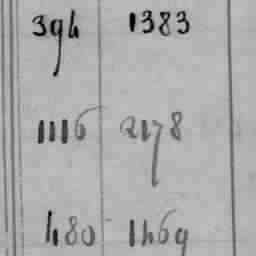 394 1383
1116 2178
480 1469